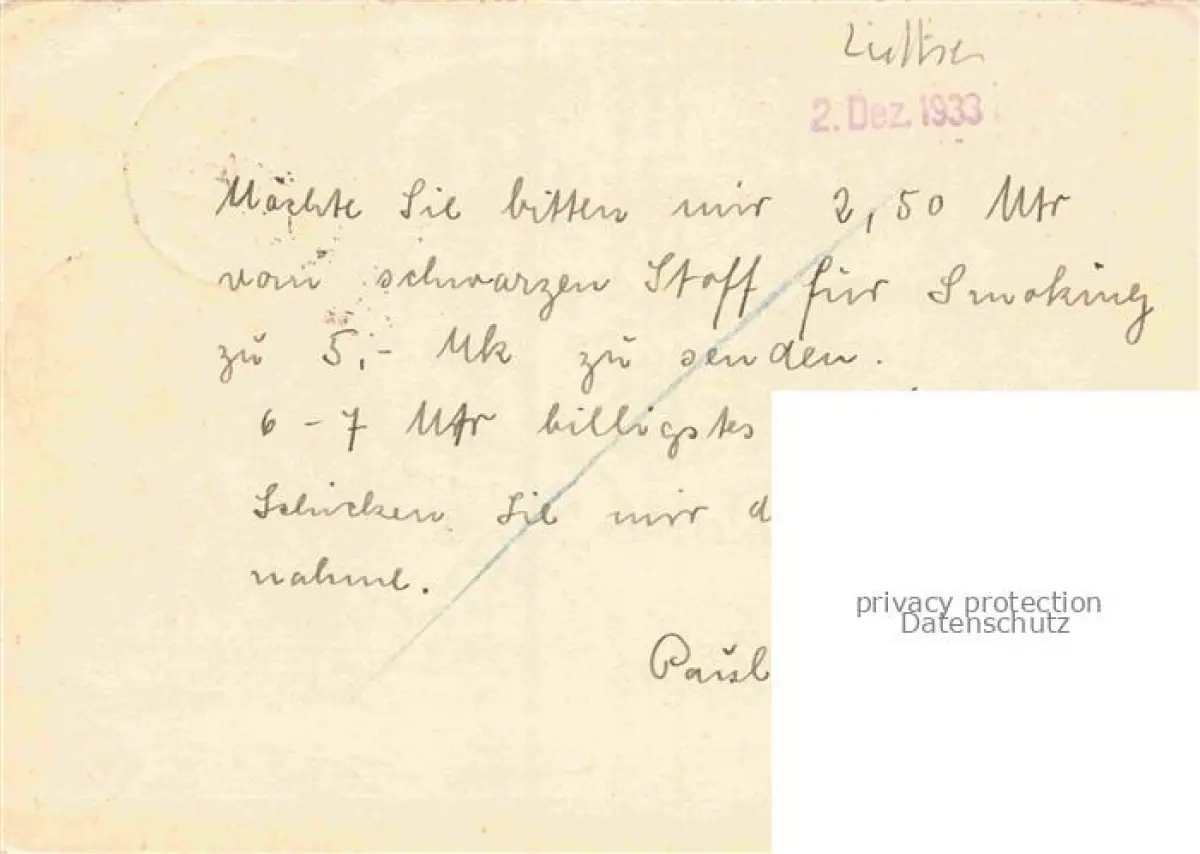 2. Dez. 1933
Möchte Sie bitten mir 2,50 Mtr
vom schwarzen Stoff für Smoking
zu 5,- Mk zu senden.
6 - 7 Mtr billigstes
Schicken Sie mir d
nahme.
Paul
privacy protection
Datenschutz